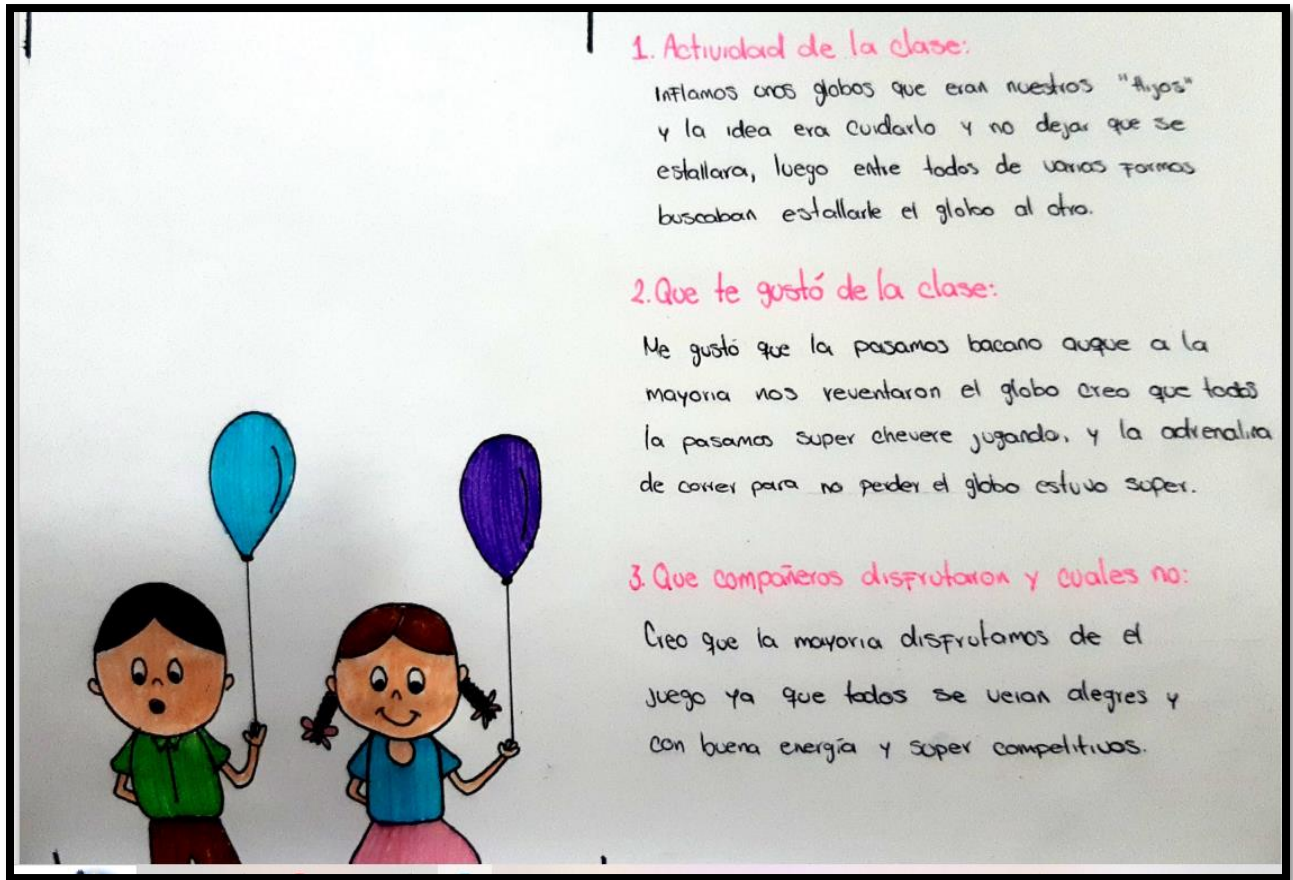 1. Actividad de la clase:
Inflamos unos globos que eran nuestros "Hijos"
y la idea era cuidarlo y no dejar que se
estallara, luego entre todos de varias formas
buscaban estallarle el globo al otro.
2. Que te gustó de la clase:
Me gustó que la pasamos bacano auque a la
mayoria nos reventaron el globo creo que todos
la pasamos super chevere jugando, y la adrenalina
de correr para no perder el globo estuvo super.
3. Que compañeros disfrutaron y cuales no:
Creo que la mayoria disfrutamos de el
juego ya que todos se veian alegres y
con buena energía y super competitivos.